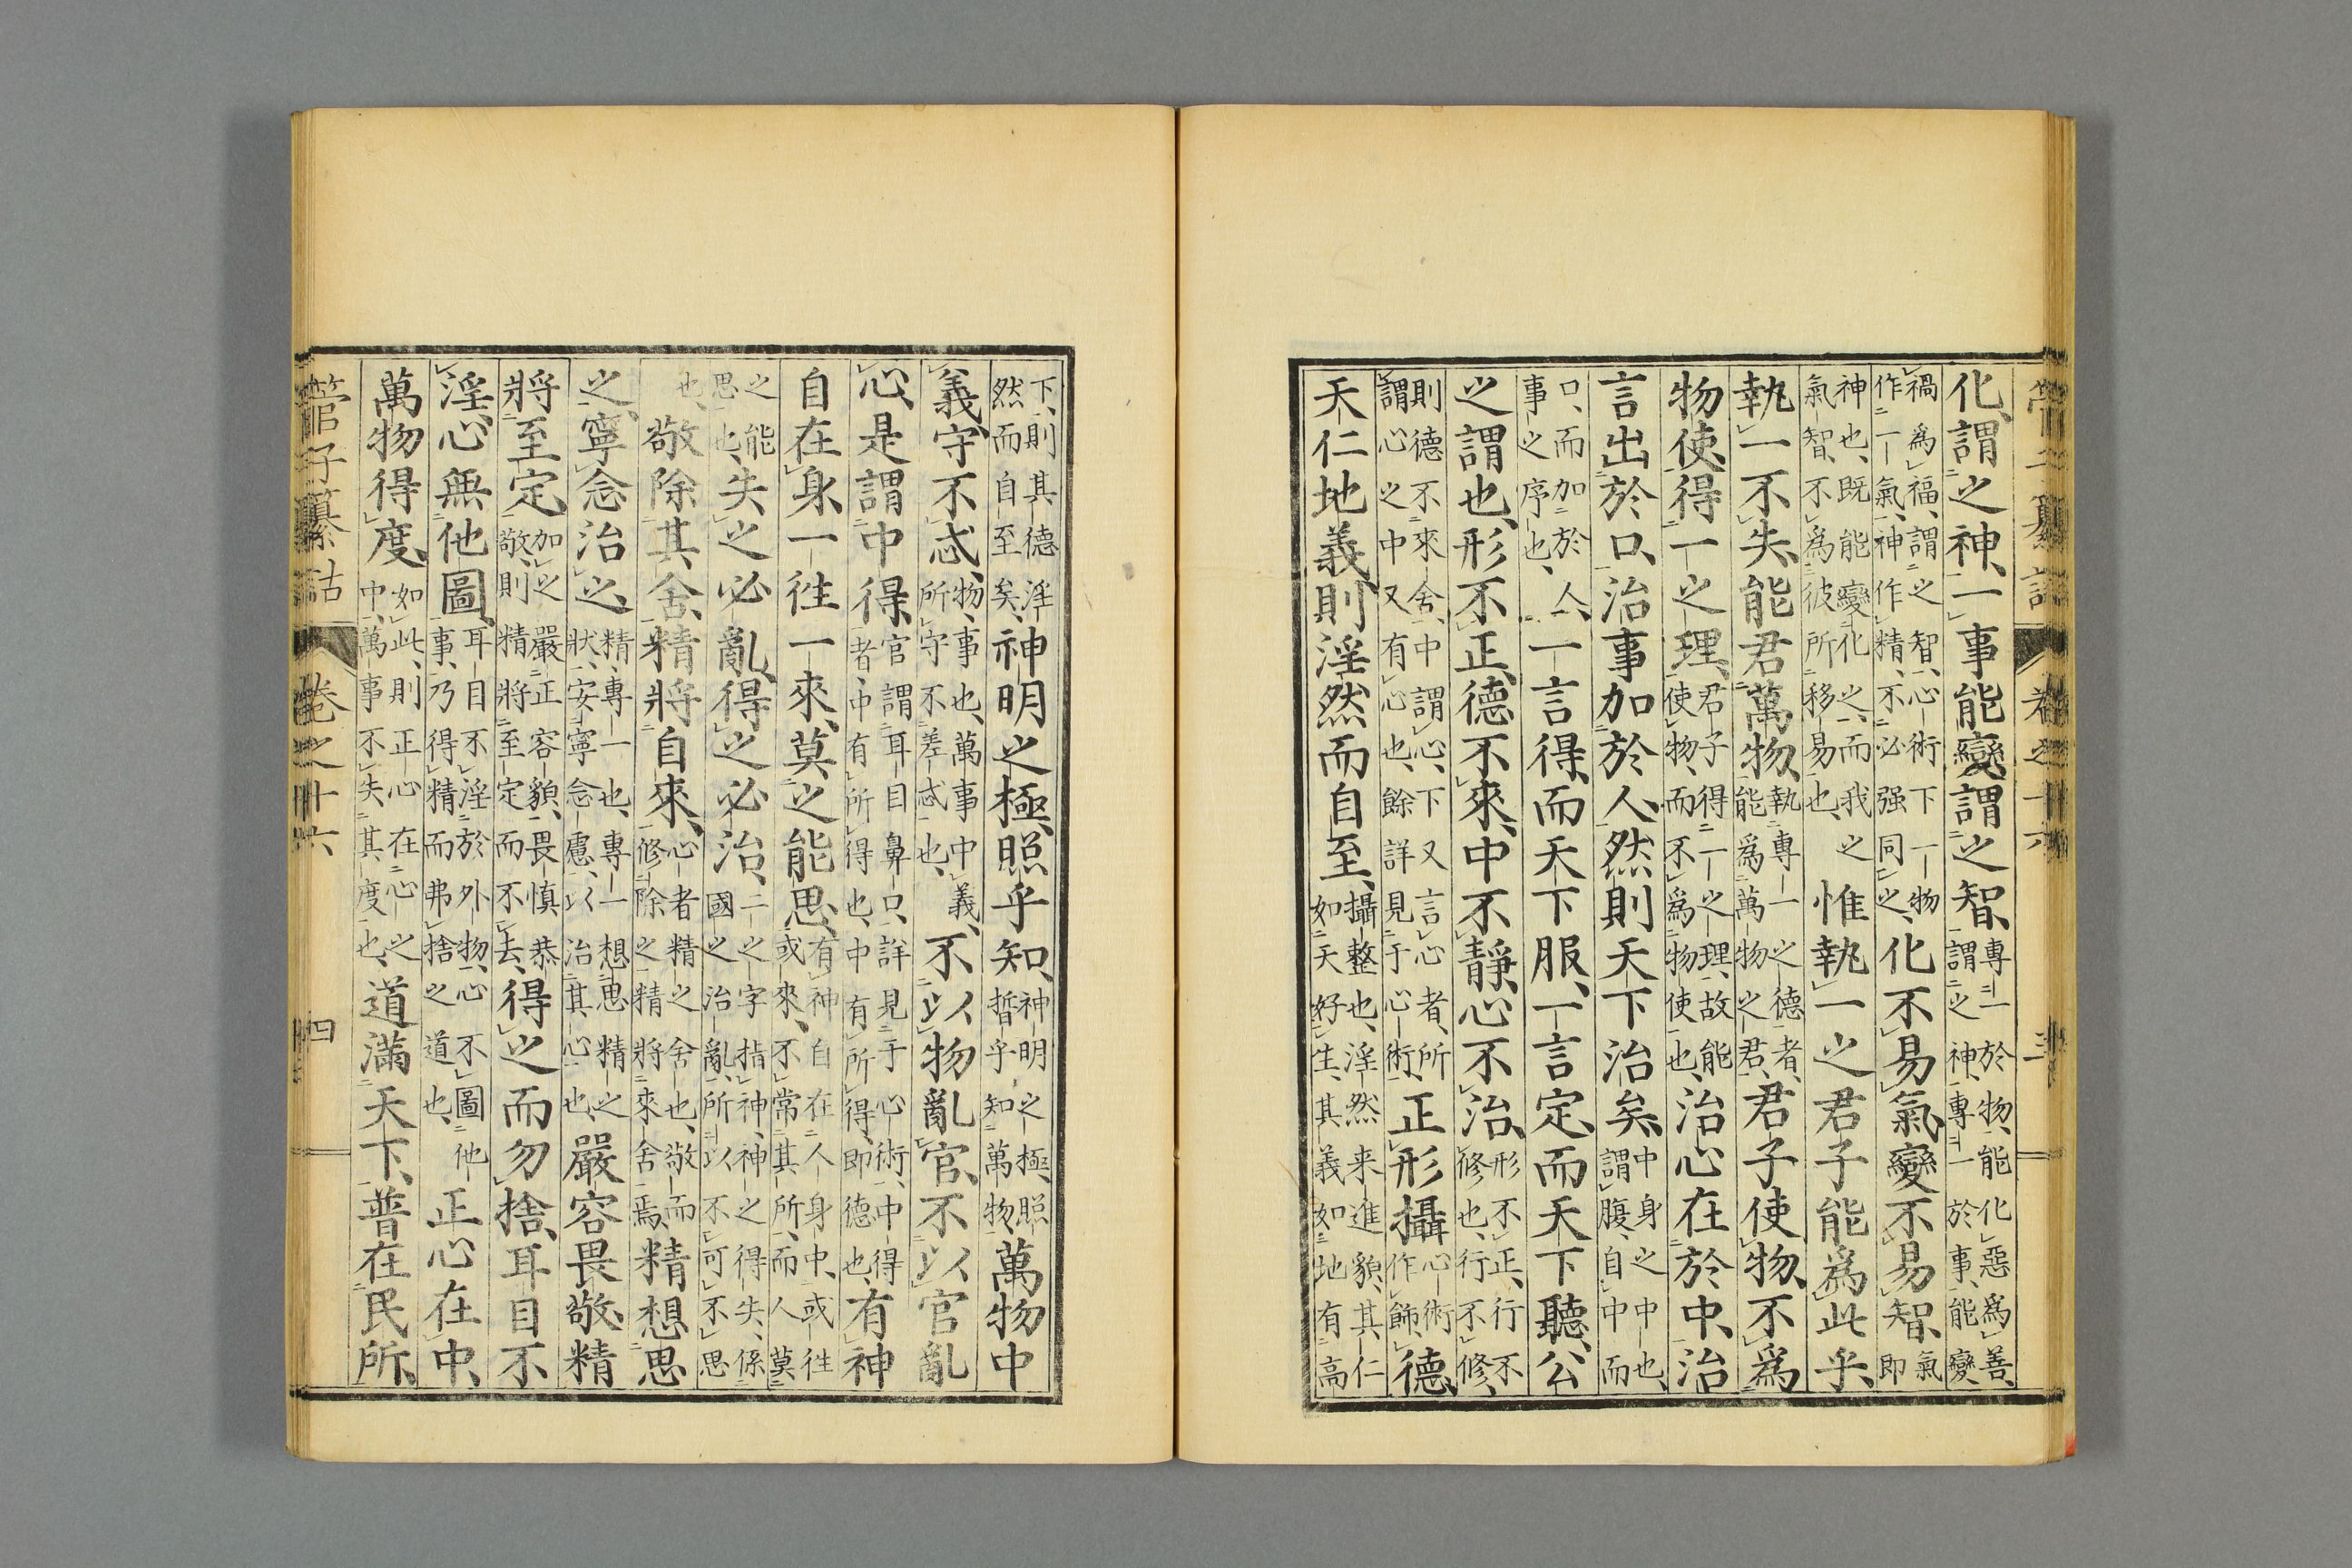 管子纂詁 卷之十六 三
化、謂之神、一事能變謂之智、
專一於物、能化惡爲善、
謂之神、專一於事、能變
禍爲福、謂之智、心術下一物、
作一氣、神作精、不必强同之、
化不易氣、變不易智、
氣
即
神也、既能變化之、而我之
氣智、不爲彼所移易也、
惟執一之君子能爲此乎、
執一不失、能君萬物、
執專一之德者、
能爲萬物之君、
君子使物、不爲
物使、得一之理、
君子得一之理、故能
使物、而不爲物使也、
治心在於中、治
言出於口、治事加於人、然則天下治矣、
中身之中也、
謂腹、自中而
口、而加於人、
事之序也、
一言得、而天下服、一言定、而天下聽、公
之謂也、形不正、德不來、中不靜、心不治、
形不正、行不
修也、行不修、
則德不來舍、中謂心、下又言心者、所
謂心之中又有心也、餘詳見于心術、
正形攝
心術
作飾、
德、
天仁地義則淫然而自至、
攝整也、淫然来進貌、其仁
如天好生、其義如地有高
下、則其德淫
然而自至矣、
神明之極、照乎知、
神明之極、照
哲乎知萬物、
萬物中
義、守不忒、
物、事也、萬事中義、
所守不差忒也、
不以物亂官、不以官亂
心、是謂中得、
官謂耳目鼻口、詳見于心術、中得
者、中有所得也、中有所得、即德也、
有神
自在身、一往一來、莫之能思、
有神自在人身中、或往
或來、不常其所、而人莫
之能
思也、
失之必亂、得之必治、
二之字指神、神之得失、係
國之治亂、所以不可不思
也、
敬除其舍、精將自來、
心者精之舍也、敬而
修除之、精將來舍焉、
精想思
之、寧念治之、
精、專一也、專一想思精之
狀、安寧念慮、以治其心也、
嚴容畏敬、精
將至定、
加之嚴正容貌、畏慎恭
敬、則精將至定而不去、
得之而勿捨、耳目不
淫、心無他圖、
耳目不淫於外物、心不圖他
事、乃得精而弗捨之道也、
正心在中、
萬物得度、
如此、則正心在心之
中、萬事不失其度也、
道滿天下、普在民所、
管子纂詁 卷之十六 四